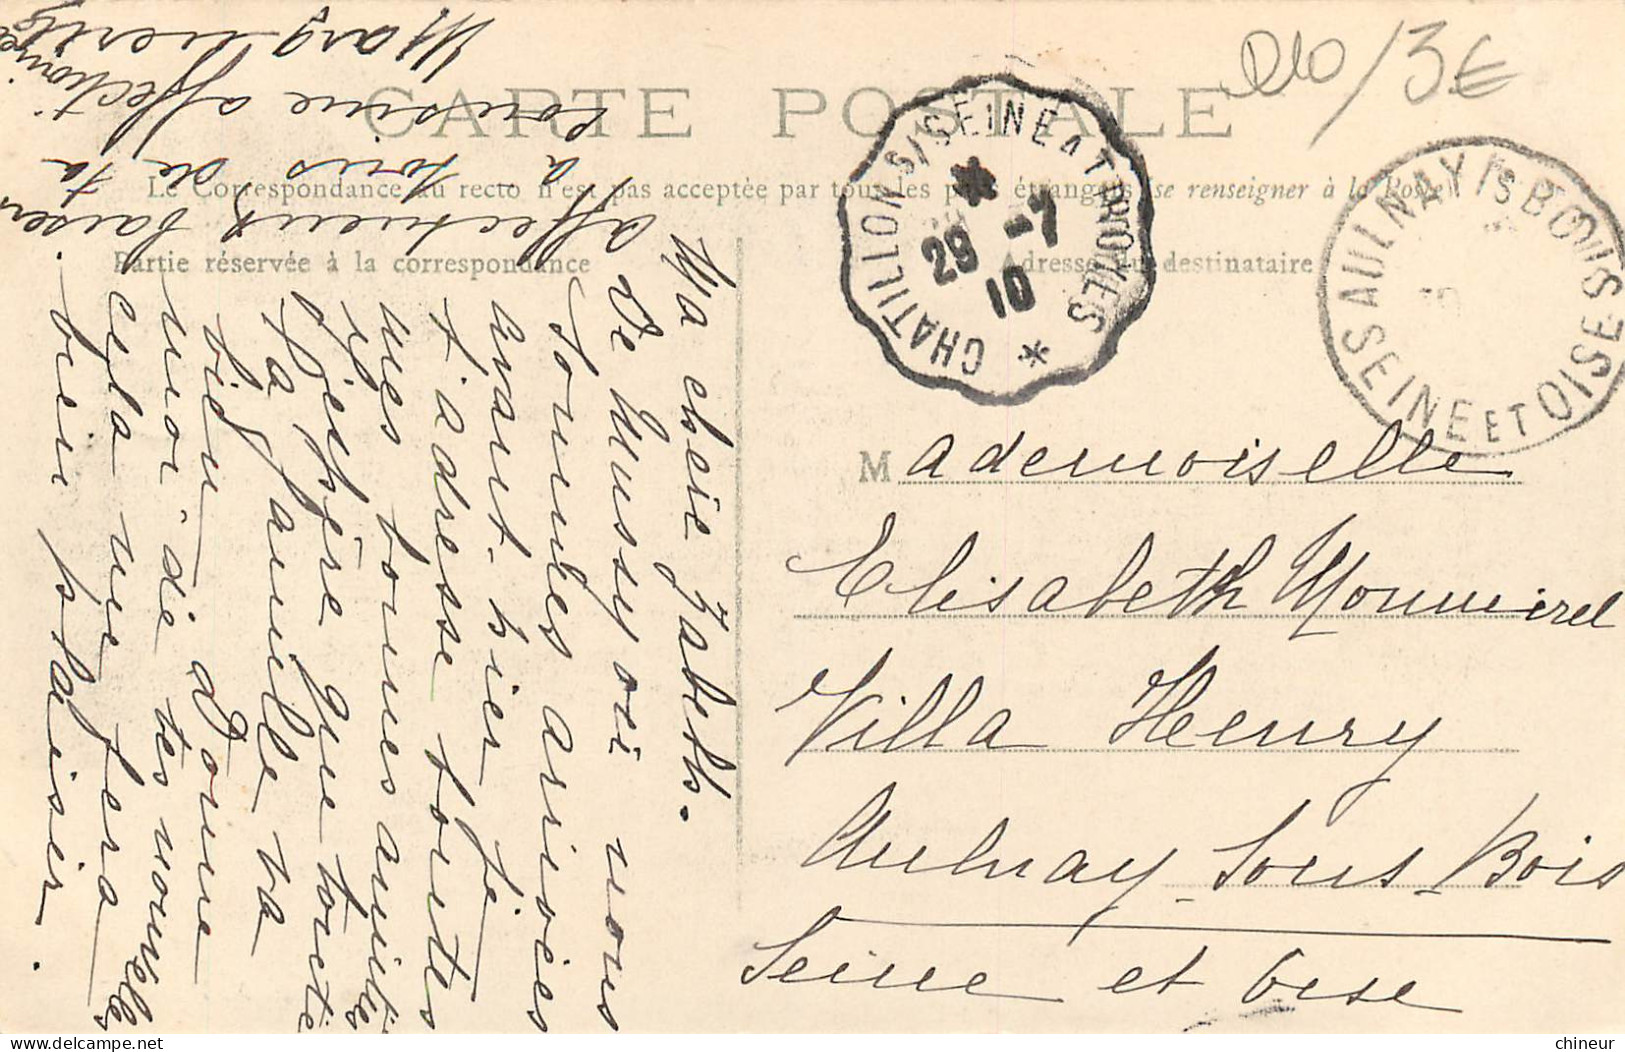 CARTE POSTALE
Le Correspondance au recto n'est pas acceptée par tous les pays étrangers (se renseigner à la Poste)
Partie réservée à la correspondance
Adresse du destinataire
210/3€
CHATILLON S/SEINE A TROYES
29 -7
10
AULNAY S/S BOIS
SEINE ET OISE
Mademoiselle
Elisabeth Monmirel
Villa Henry
Aulnay-Sous-Bois
Seine et Oise
Ma chère Zabeth.
De Mussy où nous
sommes arrivées
avant-hier je
t'adresse toutes
mes bonnes amitiés
et j'espère que toute
ta famille va
bien. Donne
moi de tes nouvelles
cela me fera
bien plaisir.
affectueux baisers
à tous de ta
cousine affectionnée
Marguerite
chineur